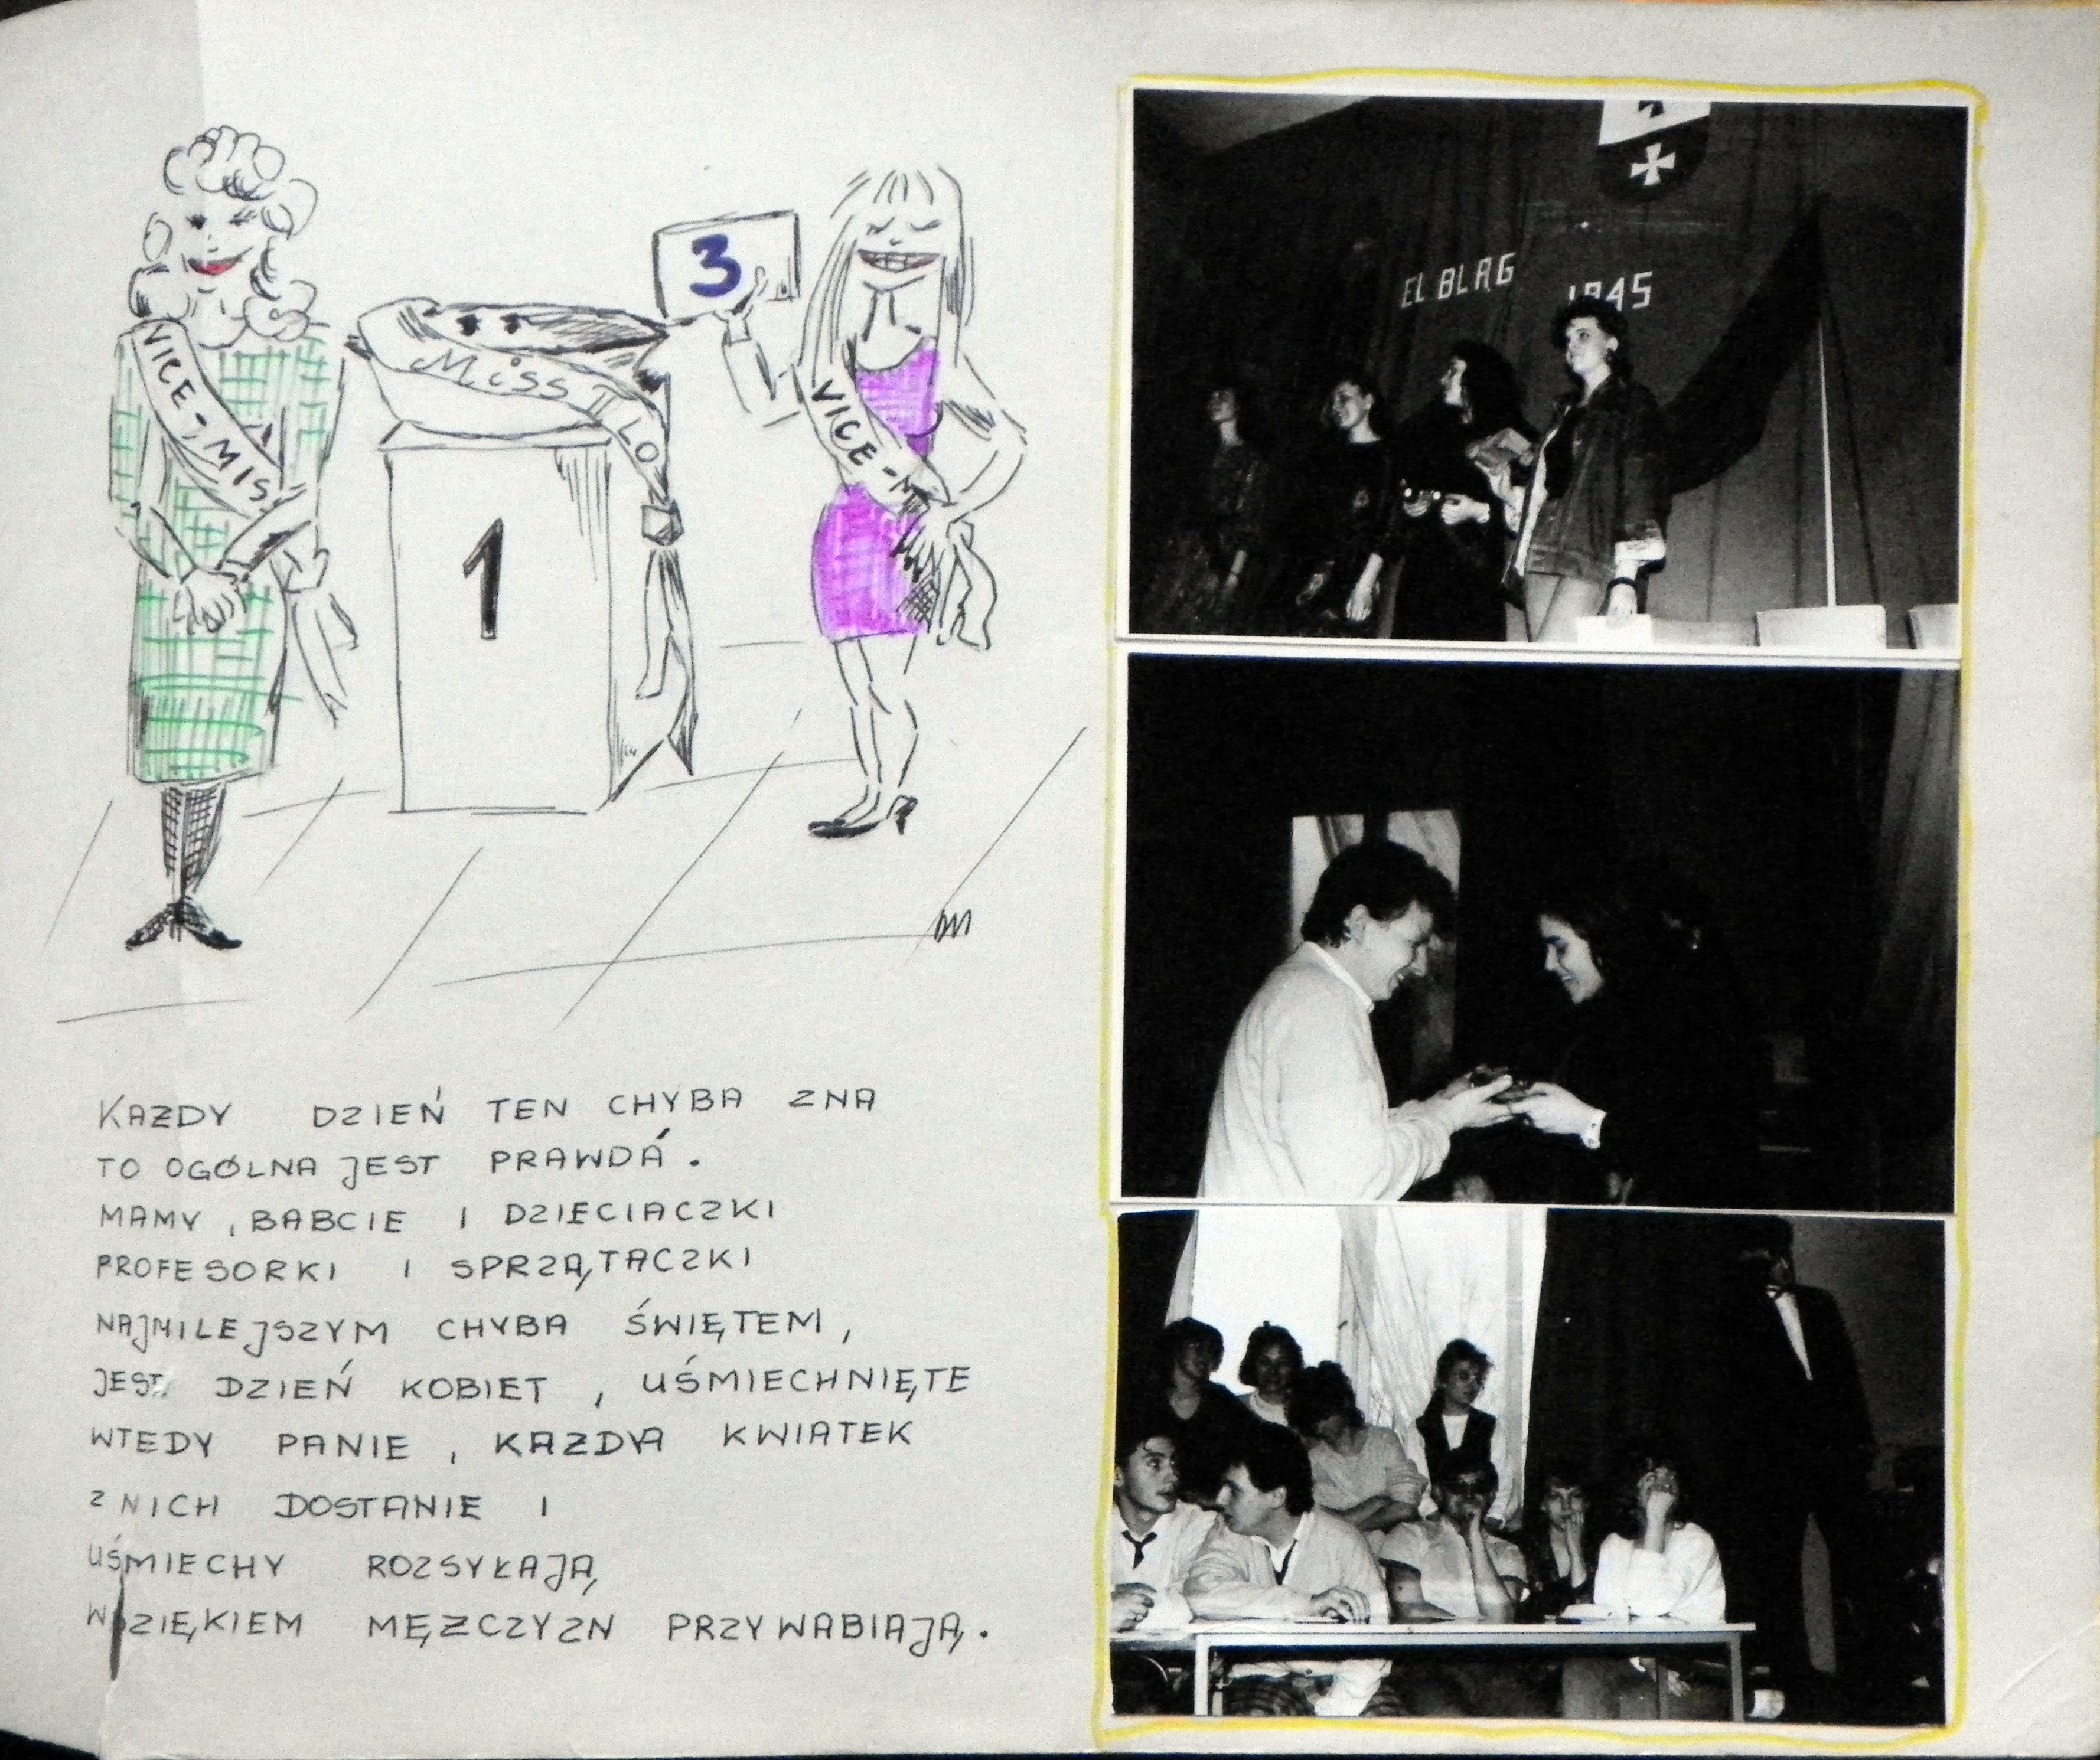 VICE-MISS
3
MISS I LO
VICE-M
1
EL BLĄG
1945
KAŻDY DZIEŃ TEN CHYBA ZNA
TO OGÓLNA JEST PRAWDA.
MAMY, BABCIE I DZIECIACZKI
PROFESORKI I SPRZĄTACZKI
NAJMILEJSZYM CHYBA ŚWIĘTEM,
JEST DZIEŃ KOBIET, UŚMIECHNIĘTE
WTEDY PANIE, KAŻDYA KWIATEK
Z NICH DOSTANIE I
UŚMIECHY ROZSYŁAJĄ,
WDZIĘKIEM MĘŻCZYZN PRZYWABIAJĄ.